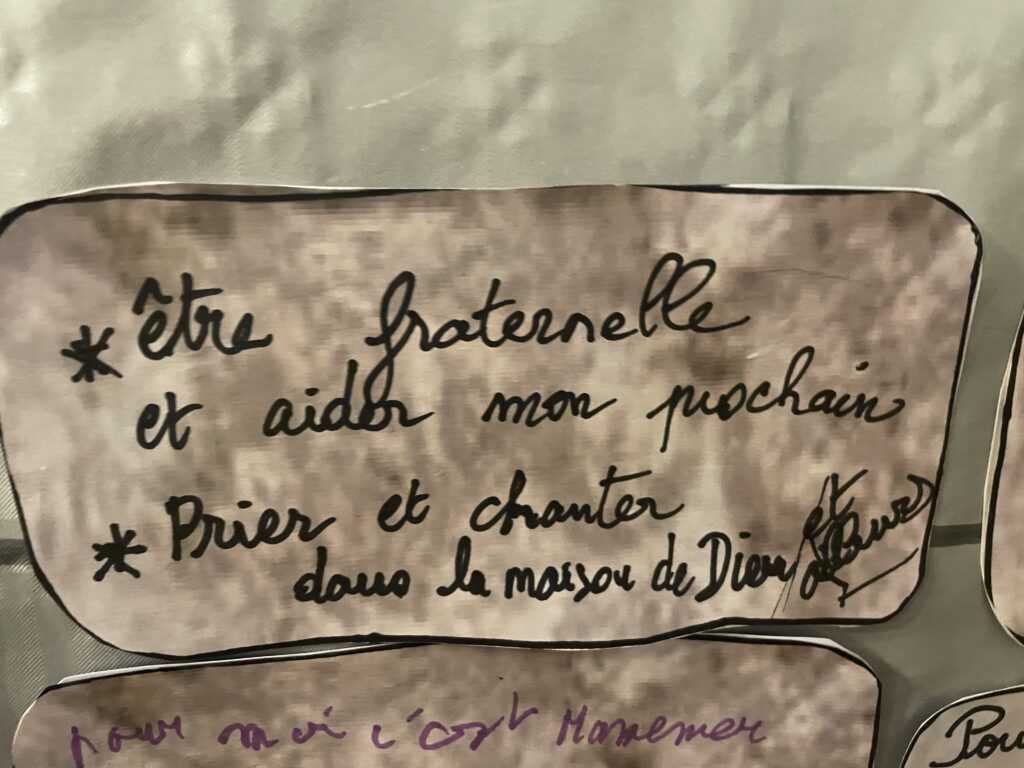 * être fraternelle
et aider mon prochain
* Prier et chanter
dans la maison de Dieu
et
pour moi c'est
Pou